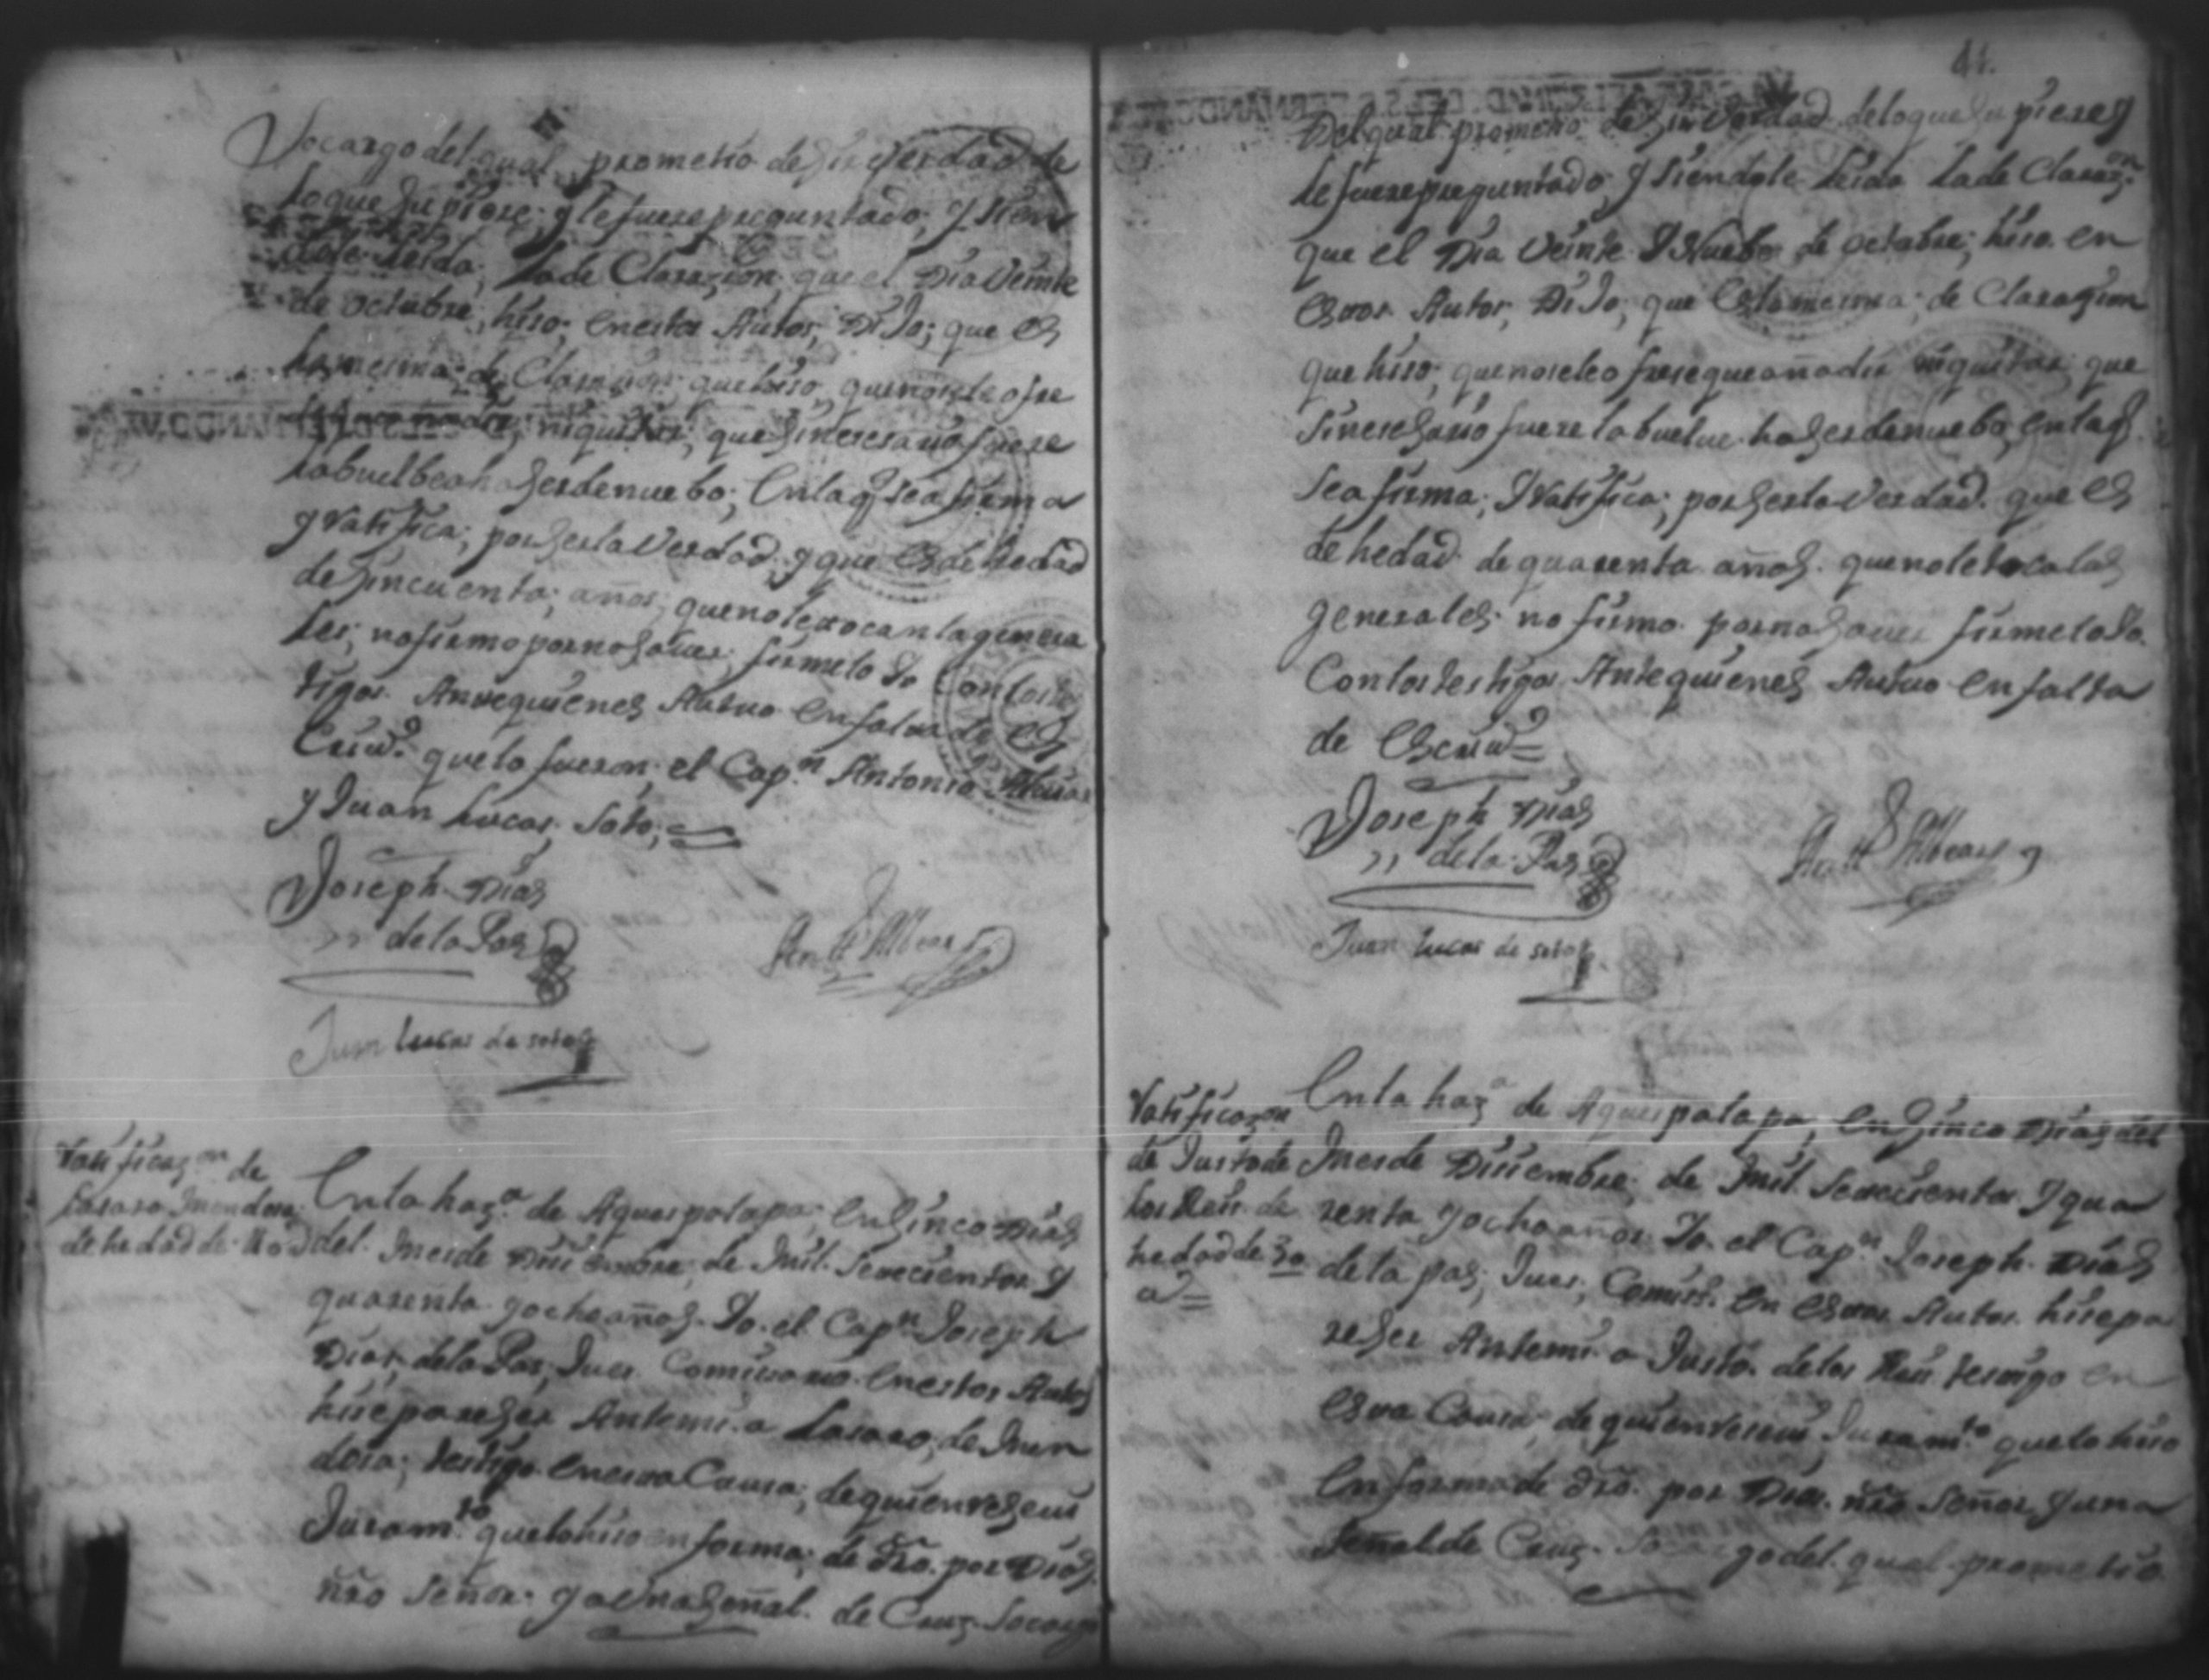 Socargo del qual prometio desir verdad de
loque supiere; y le fuere preguntado; y sien
dole leida; la de Clarasion que el Dia Veinte
de octubre, hiso; en estos Autos, Dijo; que es
la mesma; de Clarasion que hiso, que no se le ofre
niquitar; que si nesesario fuere
la buelbe a haser de nuebo; en la q̃ se a firma
y ratifica; por ser la verdad y que es de hedad
de sincuenta; años; que no le tocan la genera
les; no firmo por no saber; firmelo Yo con los tes
tigos. Ante quienes Actuo en falta de es
Criv.o que lo fueron; el Cap.n Antonio
y Juan Lucas, Soto;
Joseph Dias
de la Pas
Juan Lucas de soto
Ratificaz.on de
Lasaro Mendosa
de hedad de
En la haz.a de Aguespalapa; en sinco Dias
del Mes de Disiembre; de Mil. Setecientos y
quarenta y ocho años. Yo el Cap.n Joseph
Dias, de la Pas, Jues Comisario en estos Autos
hise pareser Ante mi a Lasaro, de Men
dosa; testigo en esta Causa; de quien reseui
Juram.to que lo hiso en forma; de dr̃o. por Dios
nr̃o Señor y a una señal de Cruz. Socargo
Del qual prometio desir Verdad de lo que supiere y
le fuere preguntado; y siendole leida la de Claraz.on
que el Dia Veinte y Nuebe de octubre; hiso en
estos Autos, Dijo; que es la mesma; de Clarasion
que hiso; que no se le ofrese que añadir niquitar; que
si nesesario fuere la buelue haser de nuebo; en la q̃
se a firma; y ratifica; por ser la Verdad. que es
de hedad de quarenta años. que no le toca las
generales. no firmo por no sauer firmelo Yo
Con los testigos Ante quienes Actuo en falta
de escriu.o
Joseph Dias
de la Pas
Juan Lucas de soto
Ratificaz.on
de Justo de
los Reis. de
hedad de 40
a.s
En la haz.a de Aguespalapa; en sinco Dias del
Mes de Disiembre; de Mil. Setecientos y qua
renta y ocho años Yo el Cap.n Joseph Dias
de la pas; Jues, Comis.o en estos Autos hise pa
reser Ante mi a Justo. de los Reis testigo en
esta Causa; de quien reseui Juram.to que lo hiso
en forma de dr̃o. por Dios. nr̃o Señor y una
Señal de Cruz. go del qual prometio